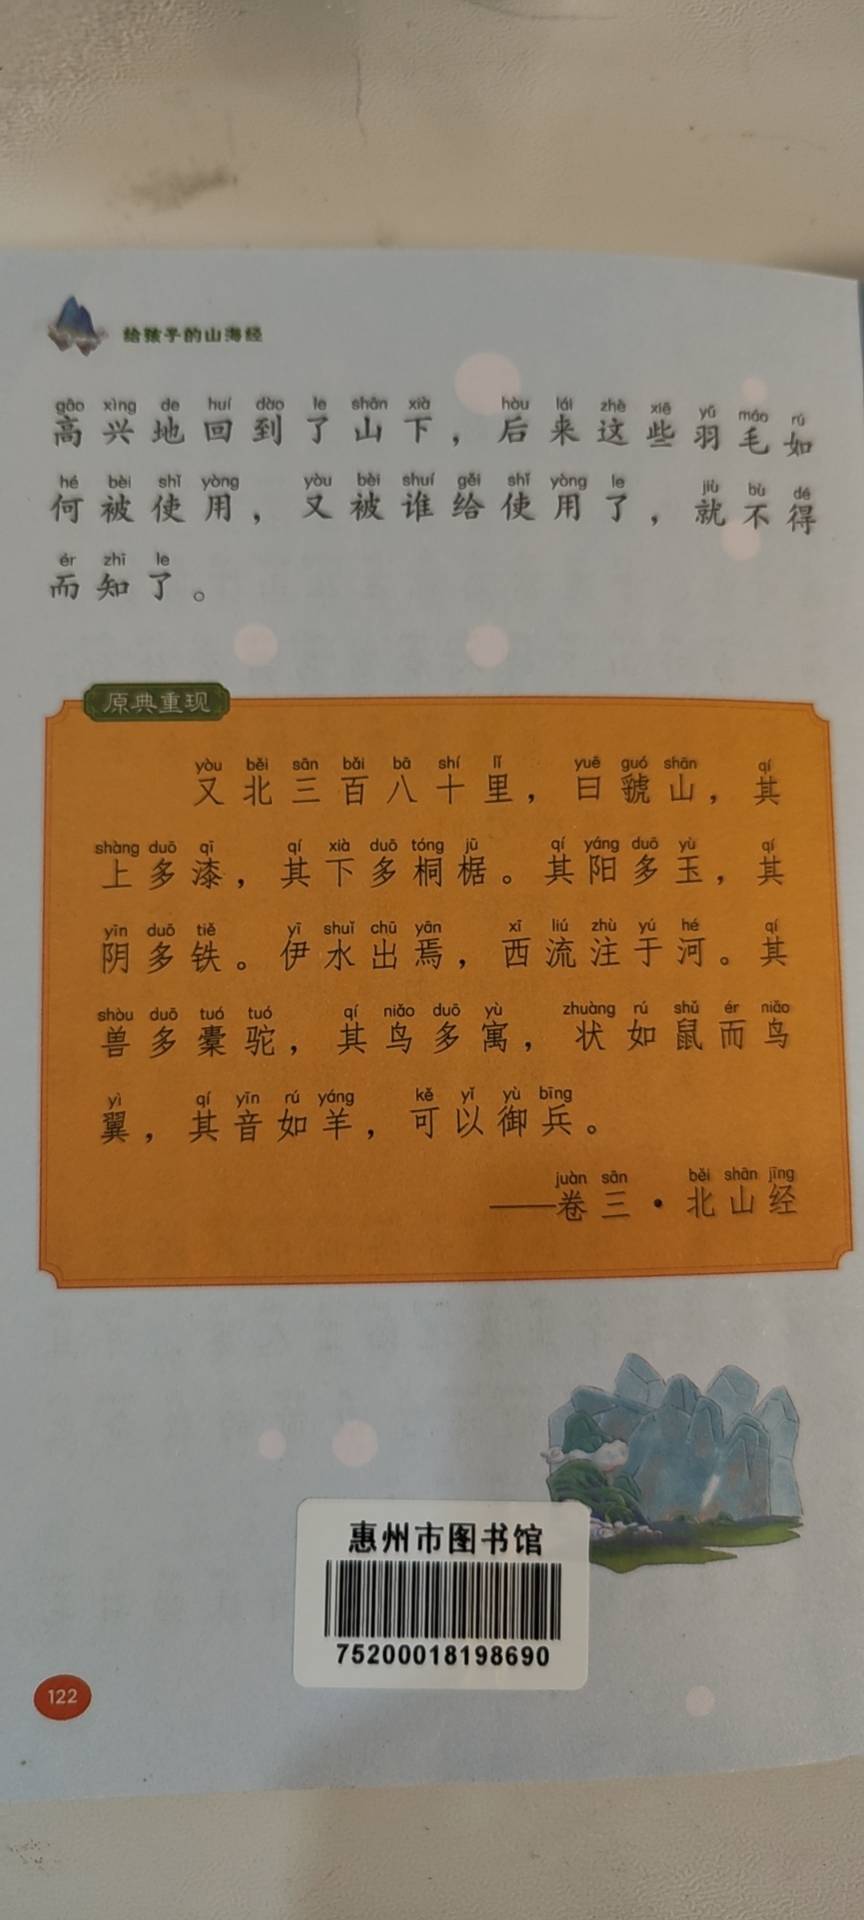 给孩子的山海经
gāo xìng de huí dào le shān xià hòu lái zhè xiē yǔ máo rú
高兴地回到了山下，后来这些羽毛如
hé bèi shǐ yòng yòu bèi shuí gěi shǐ yòng le jiù bù dé
何被使用，又被谁给使用了，就不得
ér zhī le
而知了。
原典重现
yòu běi sān bǎi bā shí lǐ yuē guó shān qí
又北三百八十里，曰虢山，其
shàng duō qī qí xià duō tóng jū qí yáng duō yù qí
上多漆，其下多桐椐。其阳多玉，其
yīn duō tiě yī shuǐ chū yān xī liú zhù yú hé qí
阴多铁。伊水出焉，西流注于河。其
shòu duō tuó tuó qí niǎo duō yù zhuàng rú shǔ ér niǎo
兽多橐驼，其鸟多寓，状如鼠而鸟
yì qí yīn rú yáng kě yǐ yù bīng
翼，其音如羊，可以御兵。
juàn sān běi shān jīng
——卷三·北山经
惠州市图书馆
75200018198690
122